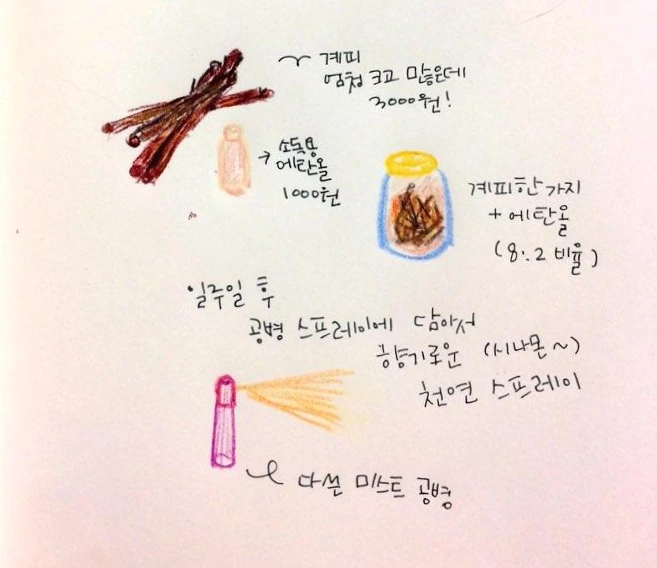 계피
엄청 크고 많은데
3000원!
소독용
에탄올
1000원
계피한 가지
+ 에탄올
(8:2 비율)
일주일 후
공병 스프레이에 담아서
향기로운 (시나몬~)
천연 스프레이
다쓴 미스트 공병